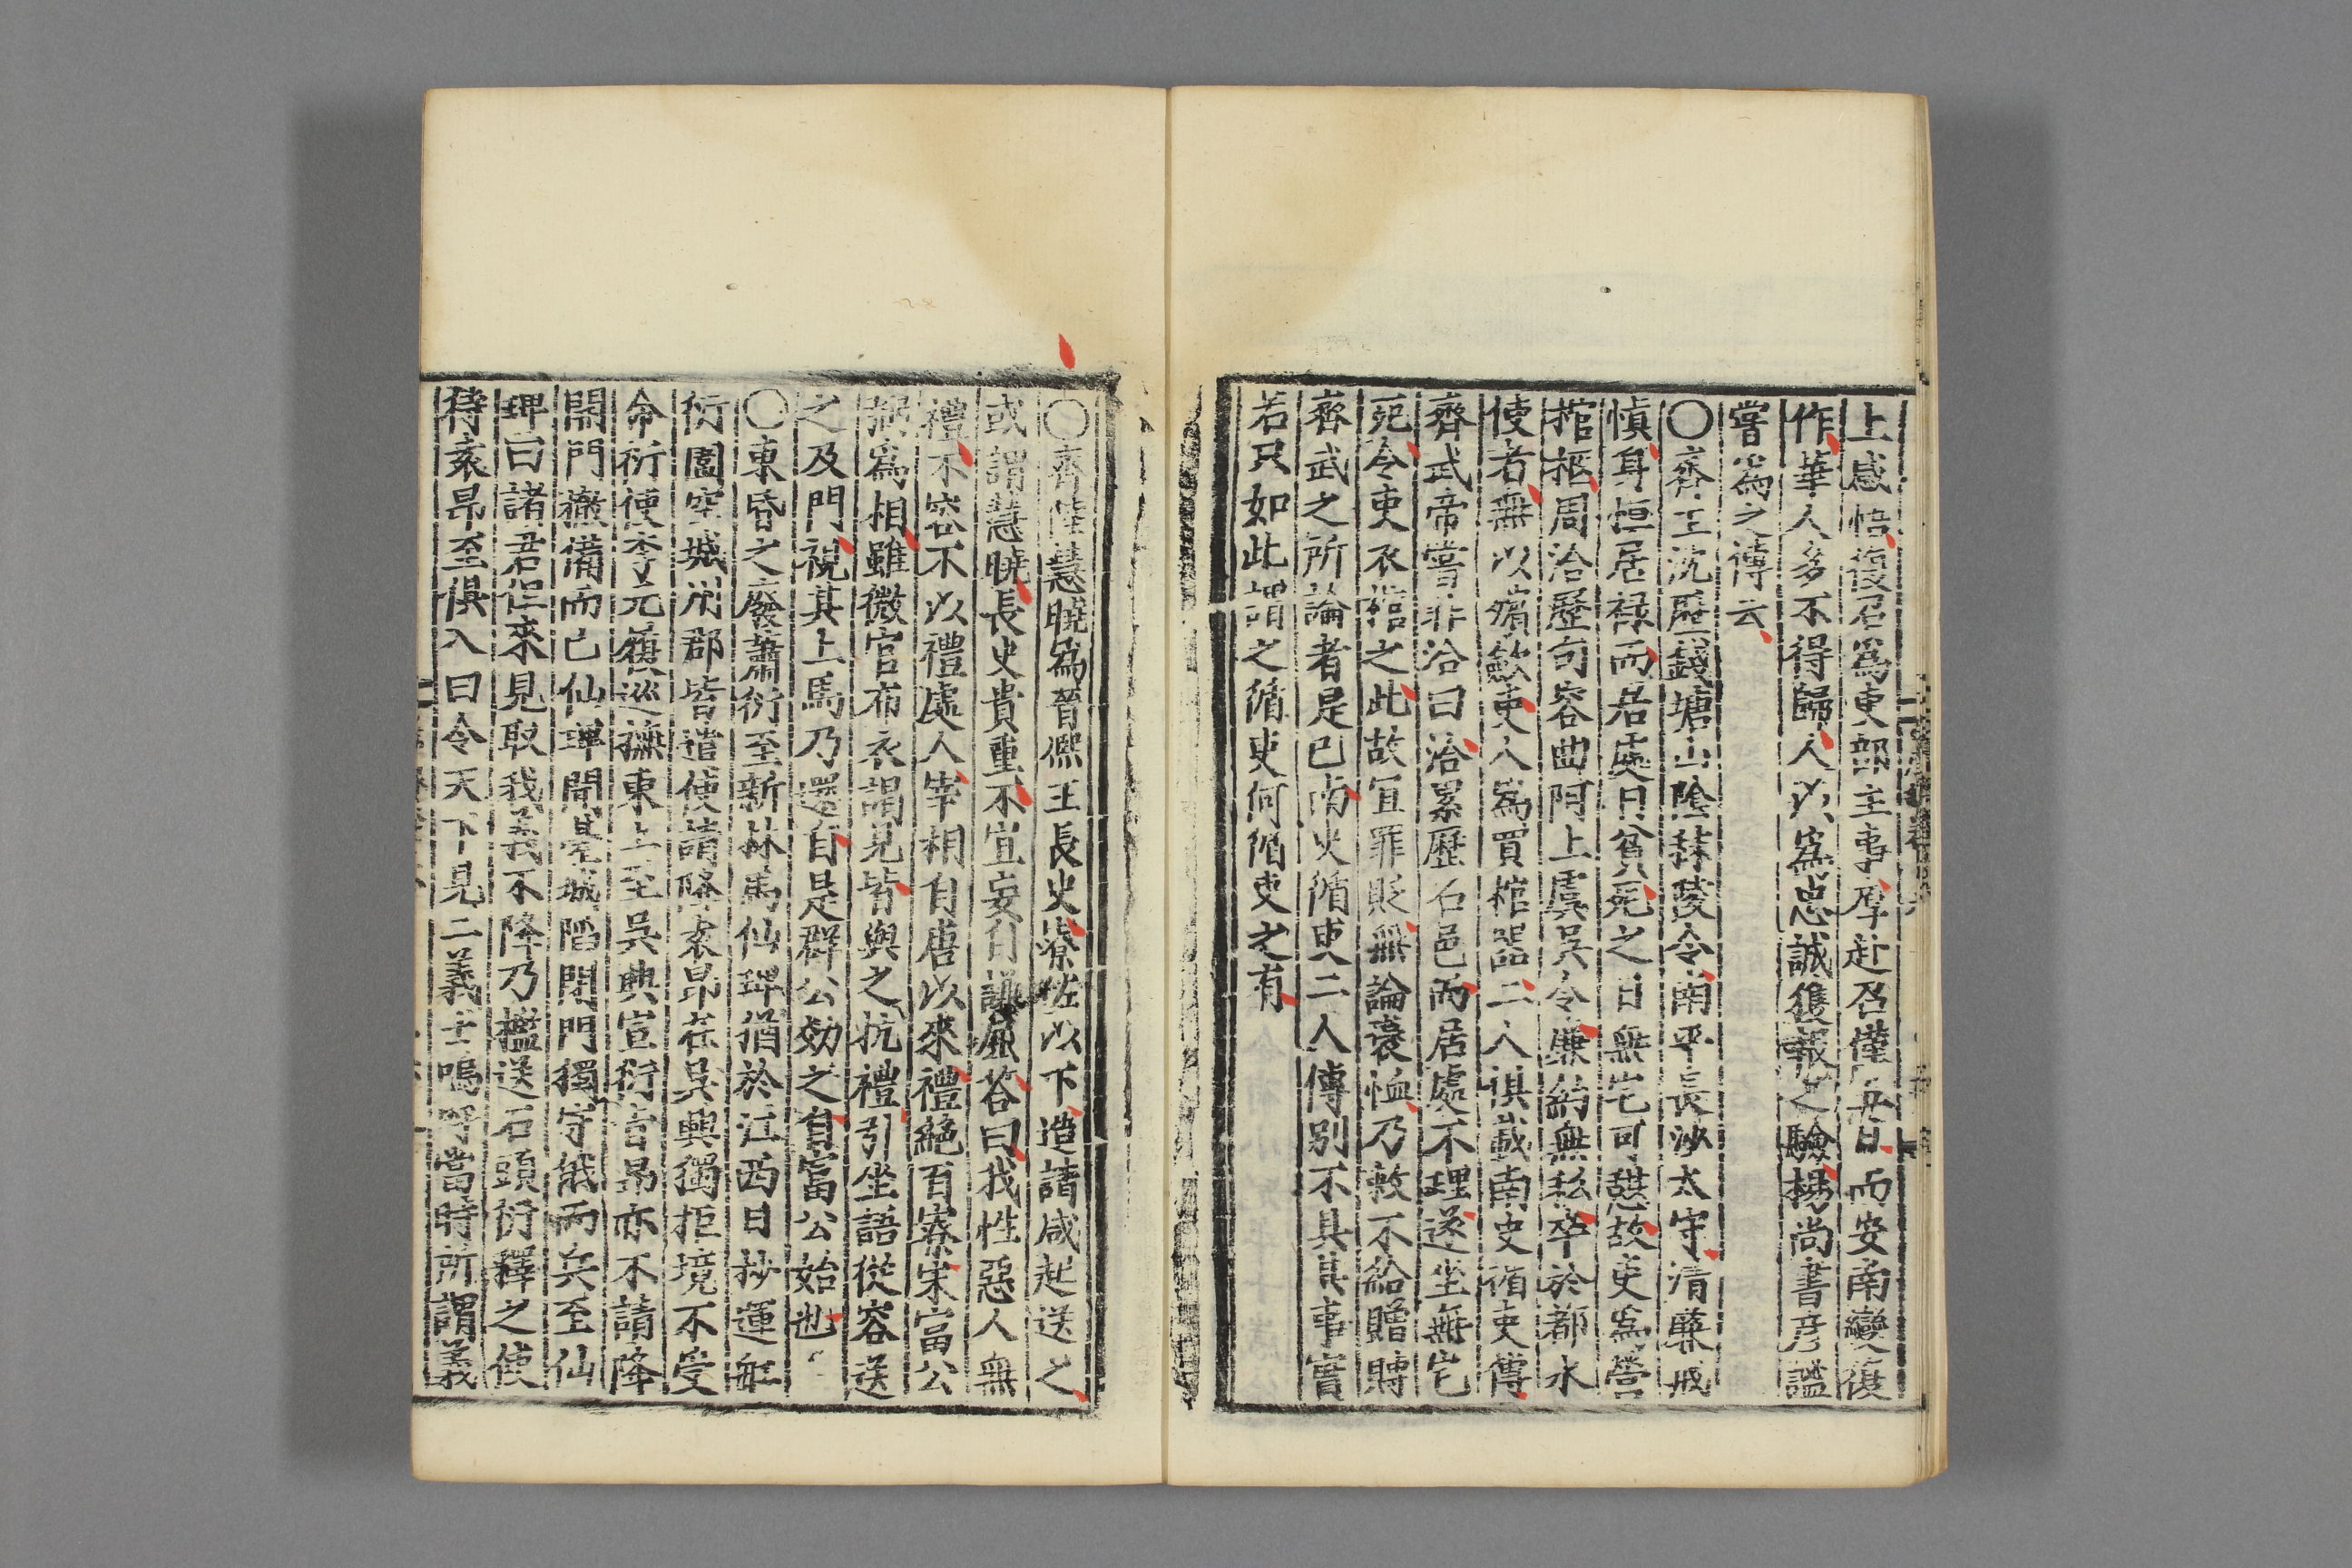 上感悟復召爲吏部主事厚赴召僅五日而安南變復
作華人多不得歸人以爲忠誠獲報之驗楊尚書彦謐
嘗爲之傳云
〇齊王沈歷錢塘山陰秣陵令南平長沙太守清廉戒
愼身恒居祿而居處日貧死之日無宅可憩故吏爲營
棺柩周洽歷句容曲阿上虞吳令廉約無私卒於都水
使者無以殯歛吏人爲買棺器二人俱載南史循吏傳
齊武帝嘗非洽曰洽累歷名邑而居處不理遂坐無宅
死令吏衣棺之此故宜罪貶無論襃恤乃敕不給贈賻
齊武之所論者是已南史循吏二人傳別不具其事實
若只如此謂之循吏何循吏之有
〇齊陸慧曉爲晉熙王長史寮佐以下造請咸起送之
或謂慧曉長史貴重不宜妄自謙屈荅曰我性惡人無
禮不容不以禮處人宰相自唐以來禮絕百寮宋富公
弼爲相雖微官布衣謁見皆與之抗禮引坐語從容送
之及門視其上馬乃還自是群公効之自富公始也
〇東昏之廢蕭衍至新林馬仙琕猶於江西日抄運舡
衍圍空城州郡皆遣使請降袁昂在吳興獨拒境不受
命衍使李元履巡撫東土至吳興宣衍旨昂亦不請降
開門徹備而已仙琕聞臺城陷閉門獨守俄而兵至仙
琕曰諸君但來見取我義不降乃檻送石頭衍釋之使
待袁昂至俱入曰令天下見二義士嗚呼當時所謂義